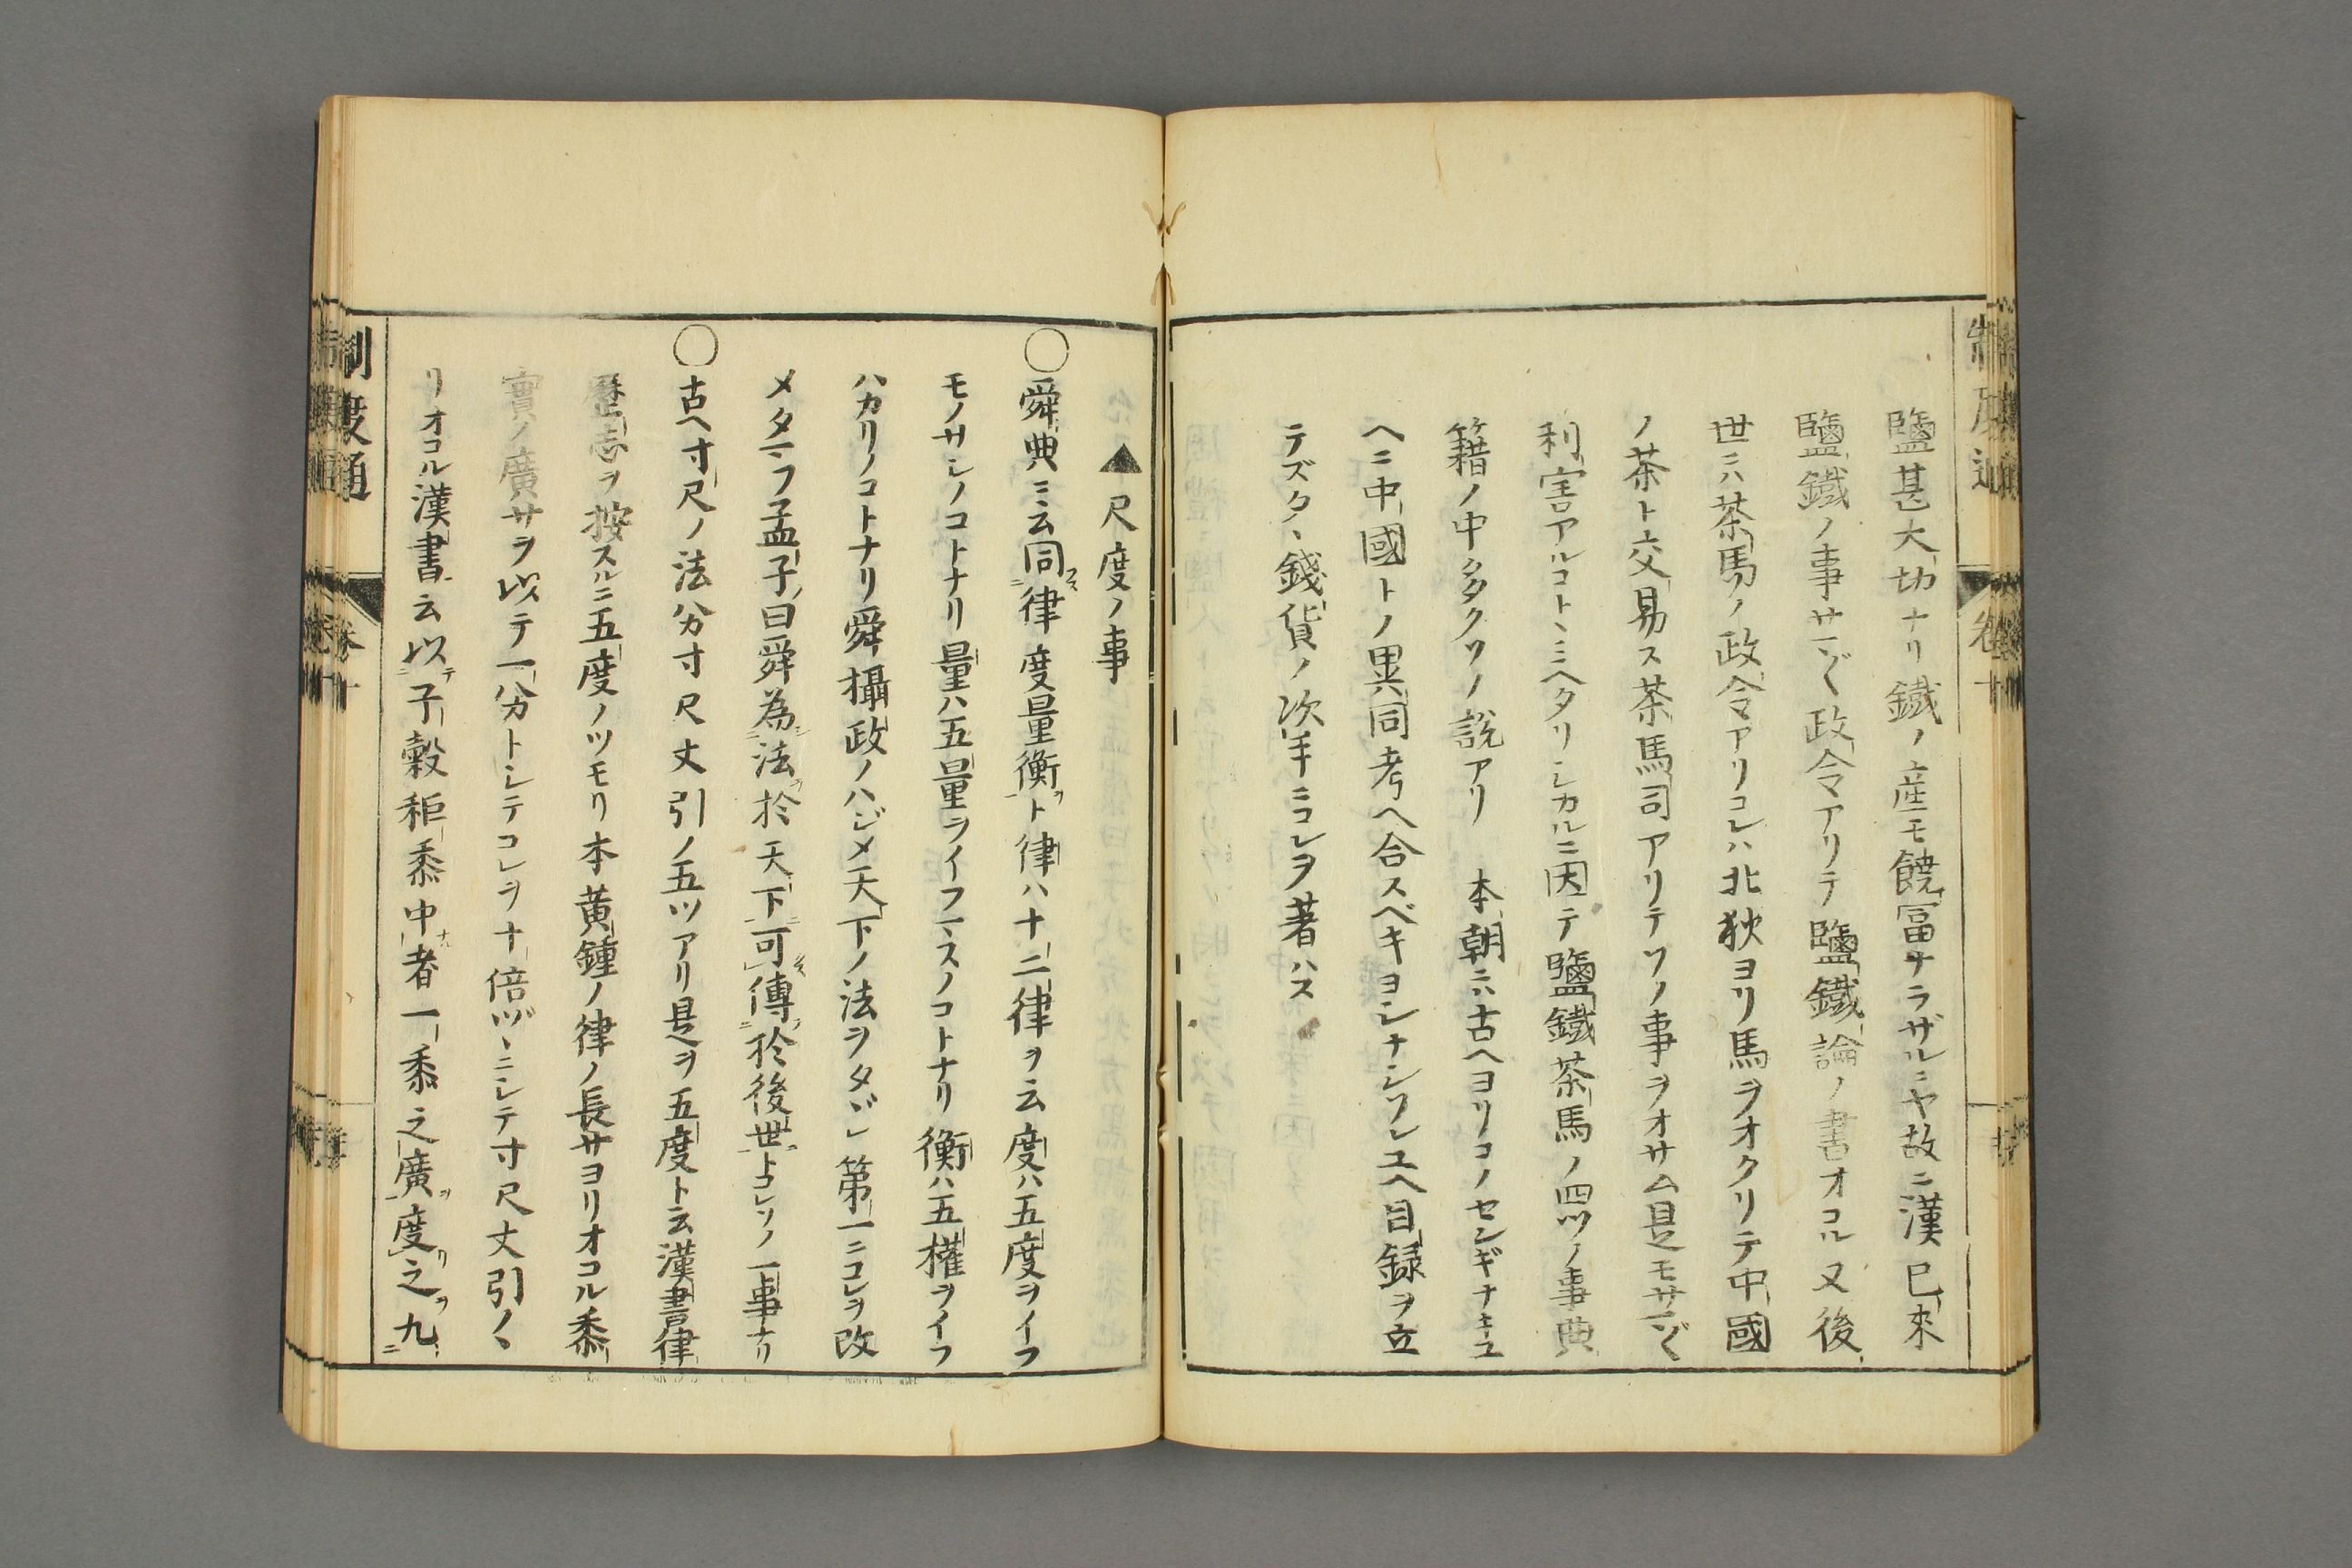 鹽甚大切ナリ鐵ノ産モ饒冨ナラザルニヤ故ニ漢已來
鹽鐵ノ事サマ〴〵政令アリテ鹽鐵論ノ書オコル又後
世ニハ茶馬ノ政令アリコレハ北狄ヨリ馬ヲオクリテ中國
ノ茶ト交易ス茶馬司アリテソノ事ヲオサム是モサマ〴〵
利害アルコトヽミヘタリシカルニ因テ鹽鐵茶馬ノ四ツノ事典
籍ノ中タクソノ説アリ　本朝ニハ古ヘヨリコノセンギナキユ
ヘニ中國トノ異同考ヘ合スベキヨシナシソレユヘ目録ヲ立
テズタヽ錢貨ノ次手ニコレヲ著ハス
▲尺度ノ事
○舜典ニ云同律度量衡ヲト律ハ十二律ヲ云度ハ五度ヲイフ
モノサシノコトナリ量ハ五量ヲイフマスノコトナリ衡ハ五權ヲイフ
ハカリノコトナリ舜攝政ノハジメ天下ノ法ヲタヾシ第一ニコレヲ改
メタマフ孟子曰舜為法於天下可傳於後世トコレソノ一事ナリ
○古ヘ寸尺ノ法分寸尺丈引ノ五ツアリ是ヲ五度ト云漢書律
歷志ヲ按スルニ五度ノツモリ本黃鍾ノ律ノ長サヨリオコル黍
實ノ廣サヲ以テ一分トシテコレヲ十倍ヅヽニシテ寸尺丈引ノヽ
リオコル漢書云以子穀秬黍中者一黍之廣度之九
制度通
卷十